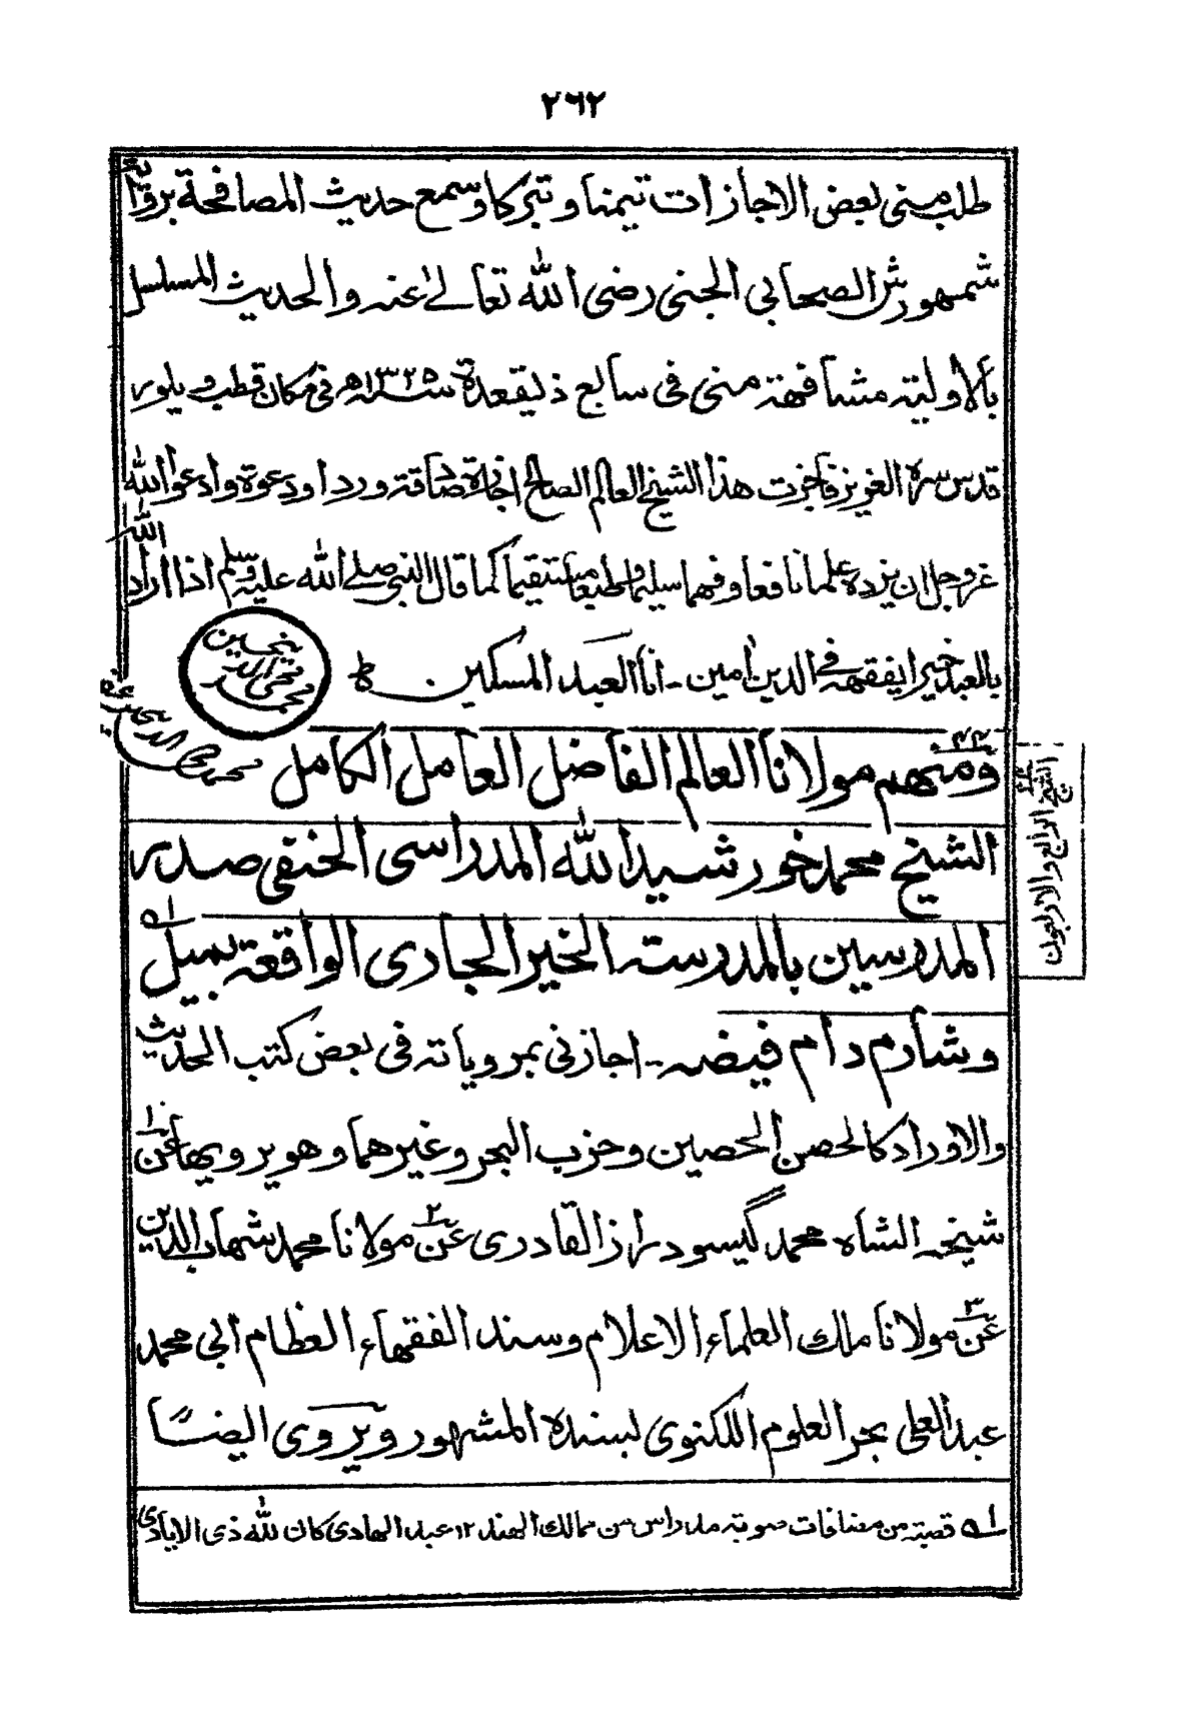 ٢٦٢
طلب منى بعض الاجازات تيمنا وتبركا وسمع حديث المصافحة برواية
شمهورش الصحابي الجنى رضى الله تعالى عنه والحديث المسلسل
بالاولية مشافهة منى فى سابع ذيقعدة سنة ١٣٢٥ه فى مكان قطب ويلور
قدس سره العزيز فاجزت هذا الشيخ العالم الصالح اجازة ضيافة وردا ودعوة وادعوا الله
عز وجل ان يزده علما نافعا وفهما سليما وطبعا مستقيما كما قال النبي صلے الله عليه وسلم اذا اراد الله
بالعبد خيرا يفقهه فى الدين امين ـ انا العبد المسكين
محمد محى الدين حسين
محمد محى الدين حسين
٤٤ ومنهم مولانا العالم الفاضل العامل الكامل
الشيخ محمد خورشيد الله المدراسى الحنفى صدر
المدرسين بالمدرسة الخير الجارى الواقعة بميل ١ه
وشارم دام فيضه ـ اجازنى بمروياته فى بعض كتب الحديث
والاوراد كالحصن الحصين وحزب البحر وغيرهما وهو يرويها عن ١
شيخه الشاه محمد گيسودراز القادرى عن ٢ مولانا محمد شهاب الدين
عن ٣ مولانا ملك العلماء الاعلام وسند الفقهاء العظام ابى محمد
عبد العلى بحر العلوم اللكنوى بسنده المشهور ويروى ايضًا
١ه قصبة من مضافات صوبة مدراس من ممالك الهند ١٢ عبد الهادى كان لله ذى الايادى
الشيخ الرابع والاربعون